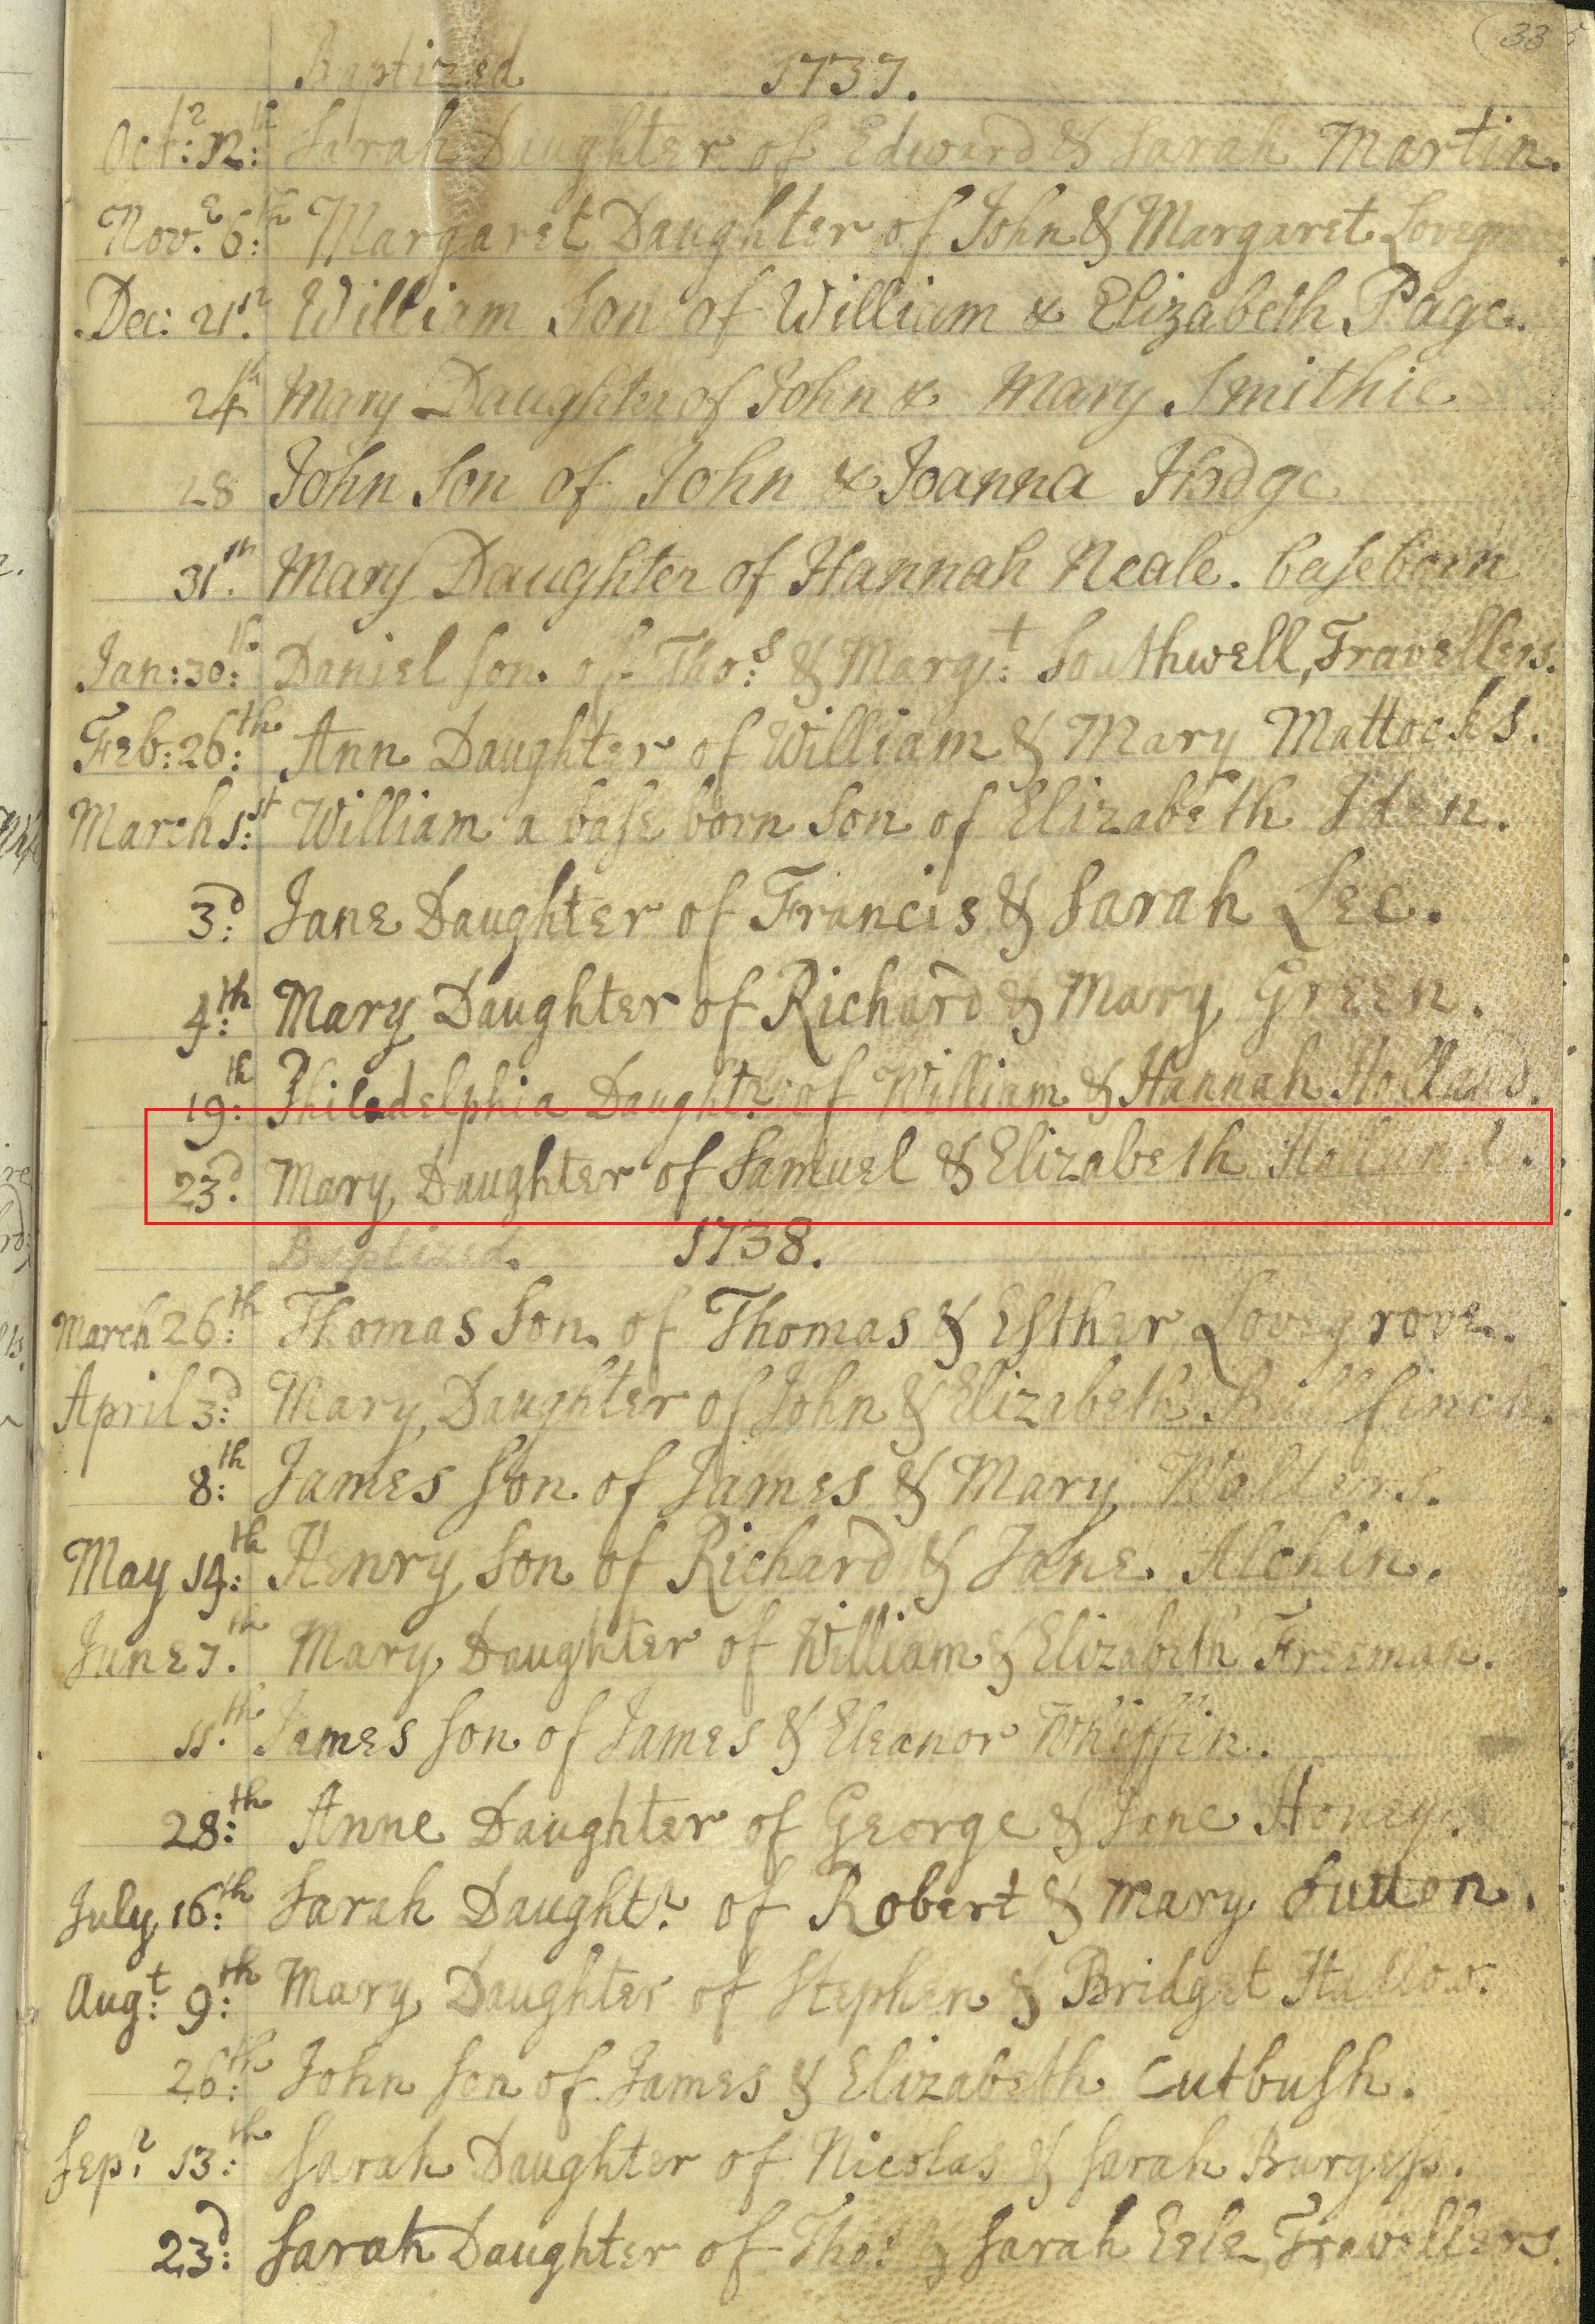 33
Baptized 1737.
Octr: 12th: Sarah Daughter of Edward & Sarah Martin.
Novr. 6th: Margaret Daughter of John & Margaret
Dec: 21st. William Son of William & Elizabeth Page.
24th Mary Daughter of John & Mary Smithie
28 John Son of John & Joanna Hodge
31th. Mary Daughter of Hannah Neale. baseborn
Jan: 30th: Daniel son of Thos: & Margt: Southwell, Travellers.
Feb: 26th: Ann Daughter of William & Mary Mattocks.
March 1st: William a base born Son of Elizabeth Iden.
3d: Jane Daughter of Francis & Sarah Lee.
4th: Mary Daughter of Richard & Mary Green.
19th: Philadelphia Daughtr. of William & Hannah Holland.
23d. Mary Daughter of Samuel & Elizabeth Holland.
Baptized. 1738.
March 26th: Thomas Son of Thomas & Esther Lovegrove.
April 3d: Mary Daughter of John & Elizabeth
8th: James Son of James & Mary Walters.
May 14th: Henry Son of Richard & Jane Alchin.
June 7th. Mary Daughter of William & Elizabeth Freeman.
11th. James son of James & Eleanor Whiffin.
28th: Anne Daughter of George & Jane Honey.
July 16th: Sarah Daughtr. of Robert & Mary Sutton.
Augt: 9th: Mary Daughter of Stephen & Bridget
26th: John son of James & Elizabeth Cutbush.
Sepr. 13th: Sarah Daughter of Nicolas & Sarah Burgess.
23d: Sarah Daughter of Thos: & Sarah Eele Travellers.